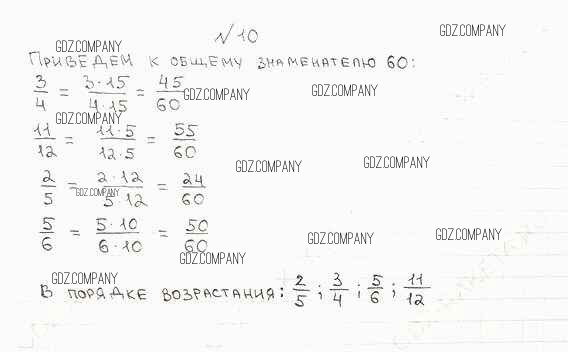 №10
GDZ.COMPANY
GDZ.COMPANY
ПРИВЕДЕМ К ОБЩЕМУ ЗНАМЕНАТЕЛЮ 60:
3/4 = 3·15/4·15 = 45/60
GDZ.COMPANY
GDZ.COMPANY
GDZ.COMPANY
11/12 = 11·5/12·5 = 55/60
GDZ.COMPANY
GDZ.COMPANY
2/5 = 2·12/5·12 = 24/60
GDZ.COMPANY
5/6 = 5·10/6·10 = 50/60
GDZ.COMPANY
GDZ.COMPANY
GDZ.COMPANY
GDZ.COMPANY
В ПОРЯДКЕ ВОЗРАСТАНИЯ: 2/5; 3/4; 5/6; 11/12